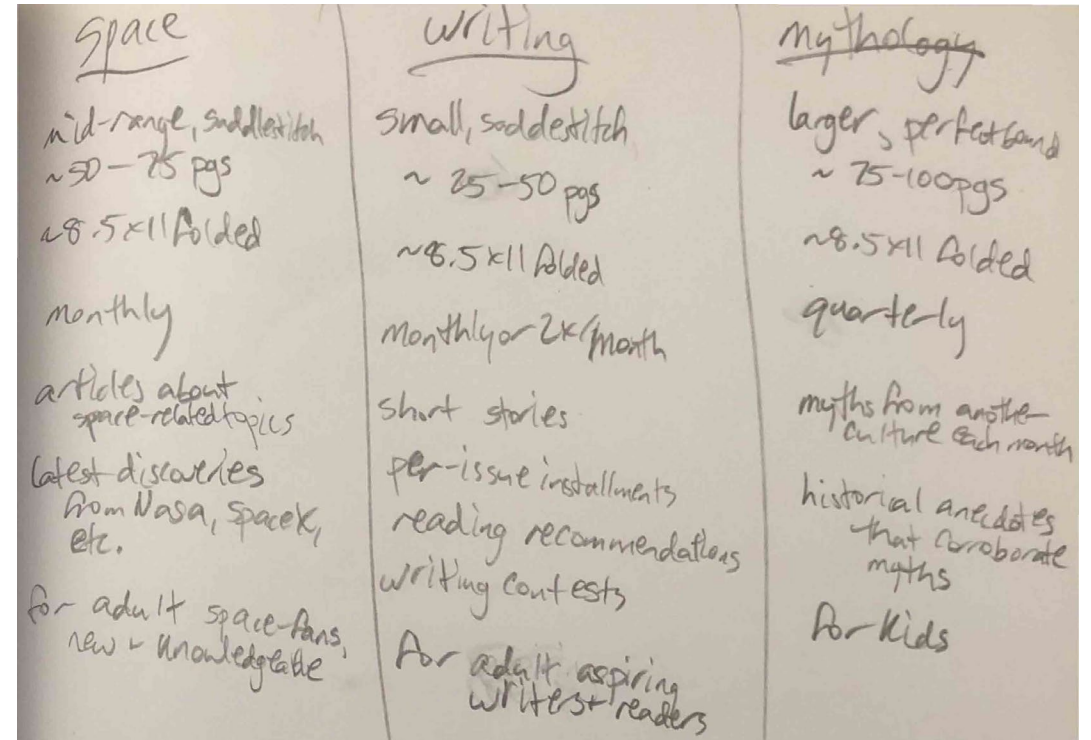 space
mid-range, saddlestitch
~50-75 pgs
~8.5x11 folded
monthly
articles about
space-related topics
latest discoveries
from Nasa, SpaceX,
etc.
for adult space-fans,
new + knowledgeable
writing
small, saddestitch
~ 25-50 pgs
~8.5x11 folded
monthly or 2x/month
short stories
per-issue installments
reading recommendations
writing contests
for adult aspiring
writers + readers
mythology
larger, perfect bound
~ 75-100pgs
~8.5x11 folded
quarterly
myths from another
culture each month
historical anecdotes
that corroborate
myths
for kids